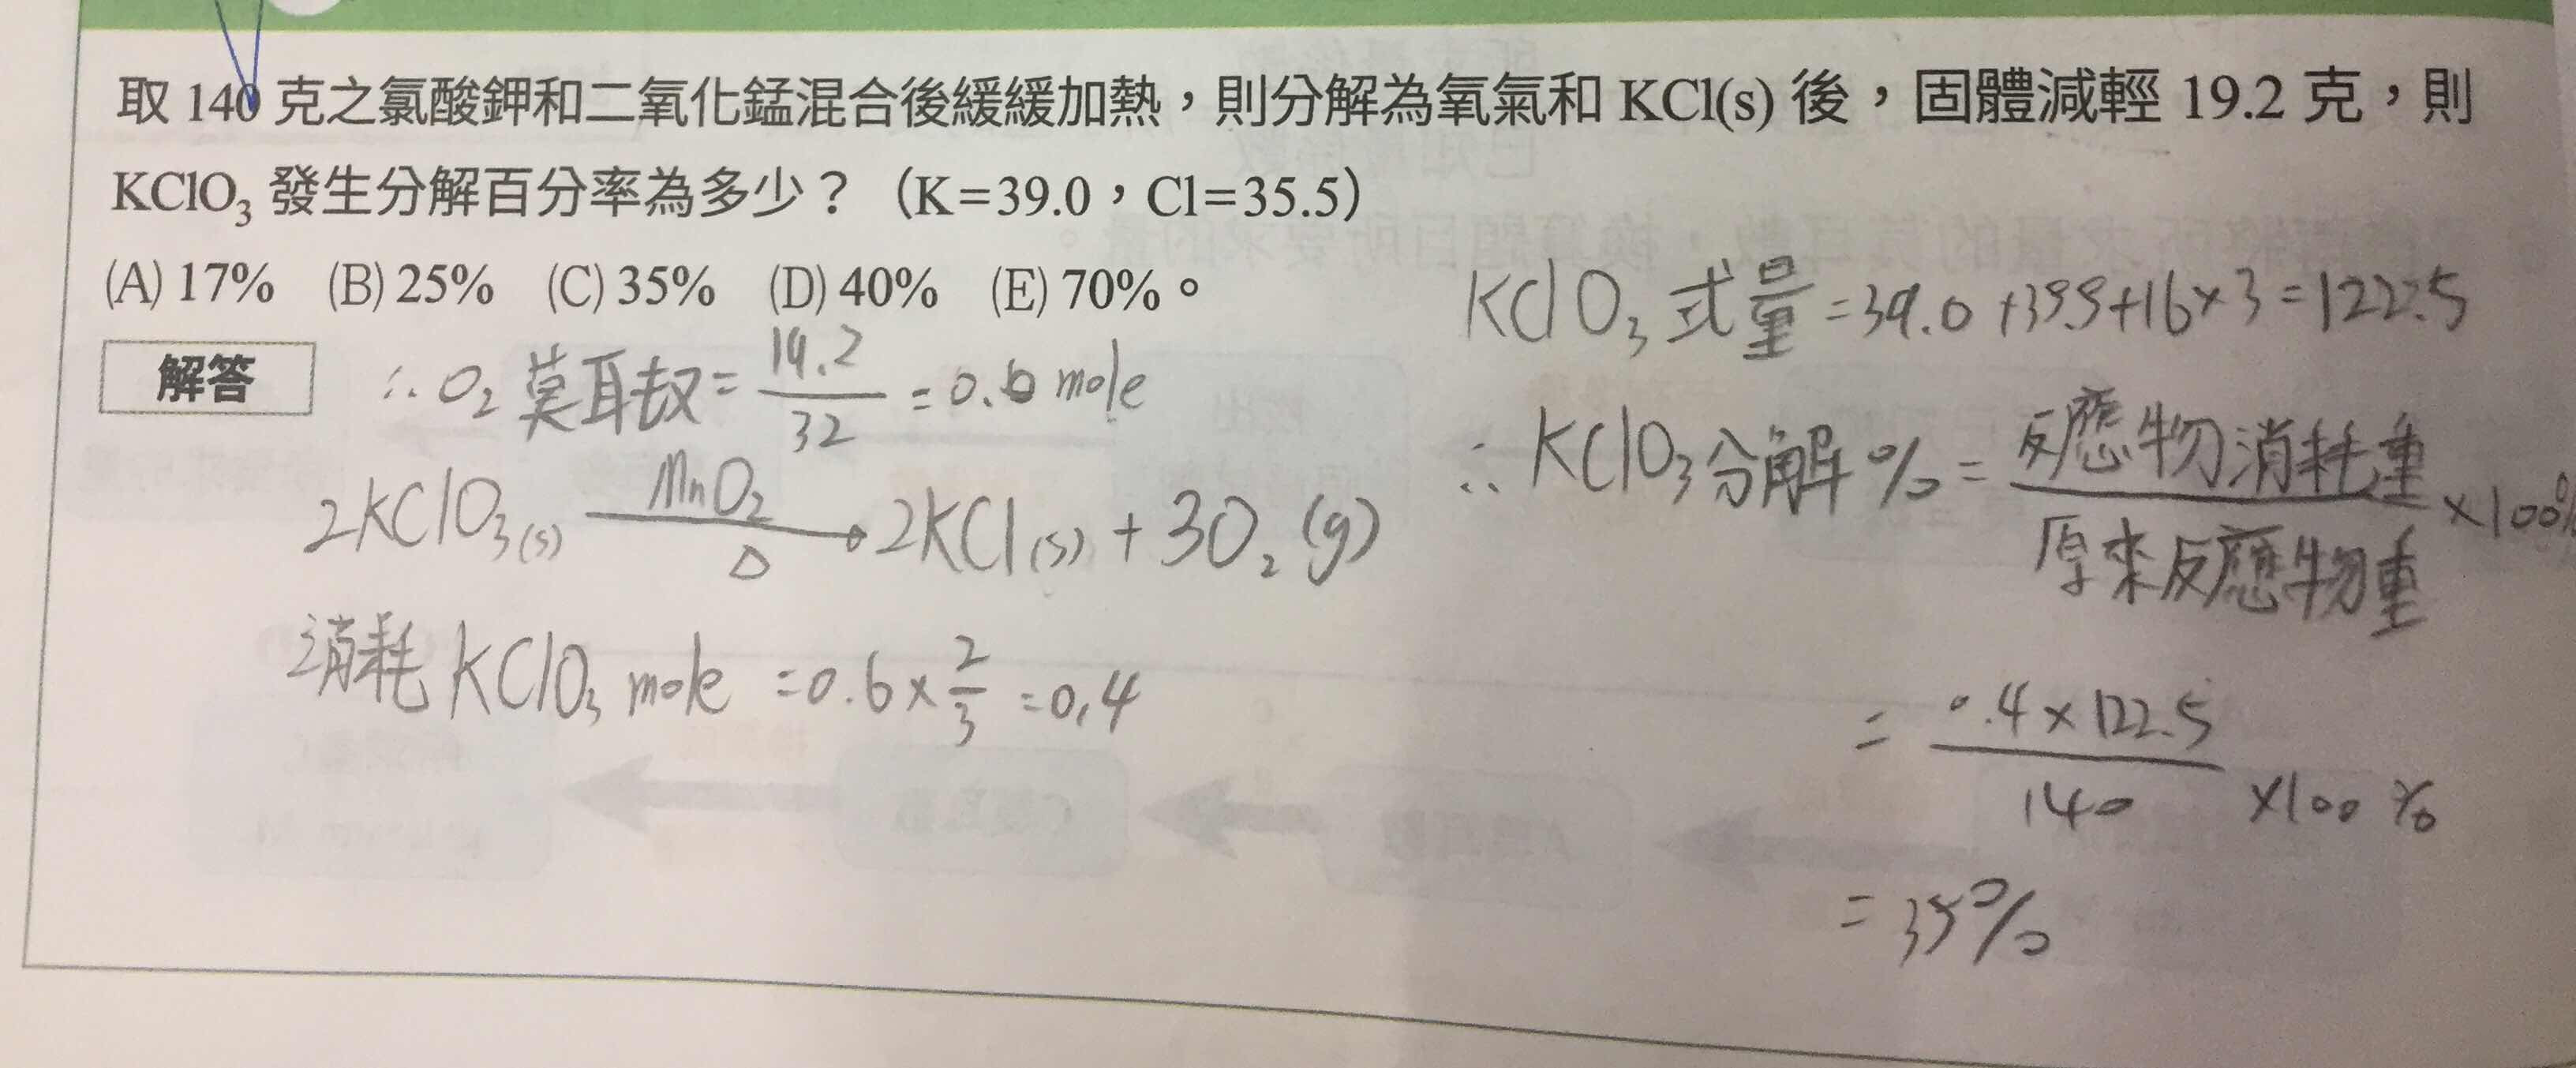 取 140 克之氯酸鉀和二氧化錳混合後緩緩加熱，則分解為氧氣和 KCl(s) 後，固體減輕 19.2 克，則
KClO₃ 發生分解百分率為多少？（K=39.0，Cl=35.5）
(A) 17% (B) 25% (C) 35% (D) 40% (E) 70%。
解答
∴ O₂ 莫耳数 = 19.2/32 = 0.6 mole
2KClO₃(s) —MnO₂/Δ→ 2KCl(s) + 3O₂(g)
消耗 KClO₃ mole = 0.6 × 2/3 = 0.4
KClO₃ 式量 = 39.0 + 35.5 + 16 × 3 = 122.5
∴ KClO₃ 分解 % = 反應物消耗重/原來反應物重 × 100%
= 0.4 × 122.5/140 × 100 %
= 35%